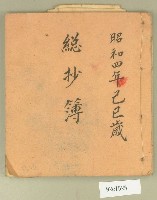 昭和四年己巳歳
総抄簿